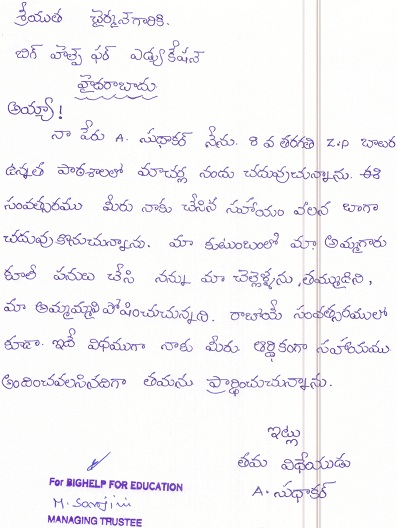 శ్రీయుత ఛైర్మన్ గారికి.
బిగ్ హెల్ప్ ఫర్ ఎడ్యుకేషన్
హైదరాబాదు
అయ్యా!
నా పేరు A. సుధాకర్ నేను. 8 వ తరగతి Z.P బాలుర
ఉన్నత పాఠశాలలో మాచర్ల నందు చదువుచున్నాను. ఈ
సంవత్సరము మీరు నాకు చేసిన సహాయం వలన బాగా
చదువుకొనుచున్నాను. మా కుటుంబంలో మా అమ్మగారు
కూలి పనులు చేసి నన్ను మా చెల్లెళ్ళను, తమ్ముడిని,
మా అమ్మమ్మని పోషించుచున్నది. రాబోయే సంవత్సరములో
కూడా. ఇదే విధముగా నాకు మీరు ఆర్థికంగా సహాయము
అందించవలసినదిగా తమను ప్రార్థించుచున్నాను.
ఇట్లు
తమ విధేయుడు
A. సుధాకర్
For BIGHELP FOR EDUCATION
M. Sarojini
MANAGING TRUSTEE